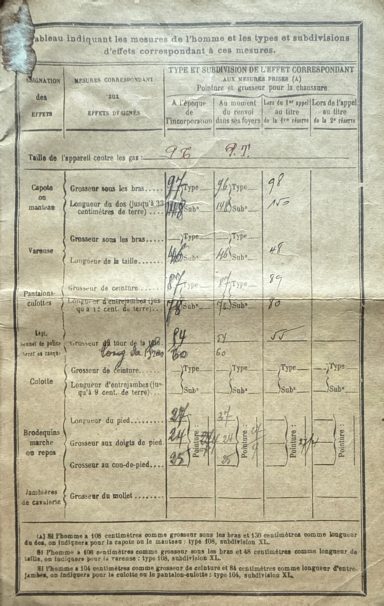 Tableau indiquant les mesures de l'homme et les types et subdivisions
d'effets correspondant à ces mesures.
DÉSIGNATION des EFFETS
MESURES CORRESPONDANT AUX EFFETS DÉSIGNÉS
TYPE ET SUBDIVISION DE L'EFFET CORRESPONDANT
AUX MESURES PRISES (A)
Pointure et grosseur pour la chaussure
A l'époque de l'incorporation
Au moment du renvoi dans ses foyers
Lors du 1er appel au titre de la 1re réserve
Lors de l'appel au titre de la 2e réserve
Taille de l'appareil contre les gaz :
Capote ou manteau
Grosseur sous les bras..... 97 Type 96 Type 98
Longueur du dos (jusqu'à 33 centimètres de terre) 148 Subon 148 Subon 150
Vareuse
Grosseur sous les bras... Type Type
Longueur de la taille... 46 Subon 46 Subon 48
Pantalons-culottes
Grosseur de ceinture... 87 Type 87 Type 89
Longueur d'entrejambes (jusqu'à 12 cent. de terre) 78 Subon 78 Subon 80
Képi, bonnet de police
Grosseur du tour de la tête 54 54 55
60 60
Culotte
Grosseur de ceinture... Type Type Type Type
Longueur d'entrejambes (jusqu'à 9 cent. de terre) Subon Subon Subon Subon
Brodequins marche ou repos
Longueur du pied... 27 27
Grosseur aux doigts de pied. 24 Pointure : 24 Pointure : Pointure : Pointure :
Grosseur au cou-de-pied... 25 25
Jambières de cavalerie
Grosseur du mollet
(A) Si l'homme a 108 centimètres comme grosseur sous les bras et 150 centimètres comme longueur
du dos, on indiquera pour la capote ou le manteau : type 108, subdivision XL.
Si l'homme a 108 centimètres comme grosseur sous les bras et 48 centimètres comme longueur de
taille, on indiquera pour la vareuse : type 108, subdivision XL.
Si l'homme a 104 centimètres comme grosseur de ceinture et 84 centimètres comme longueur d'entre-
jambes, on indiquera pour la culotte ou le pantalon-culotte : type 104, subdivision XL.